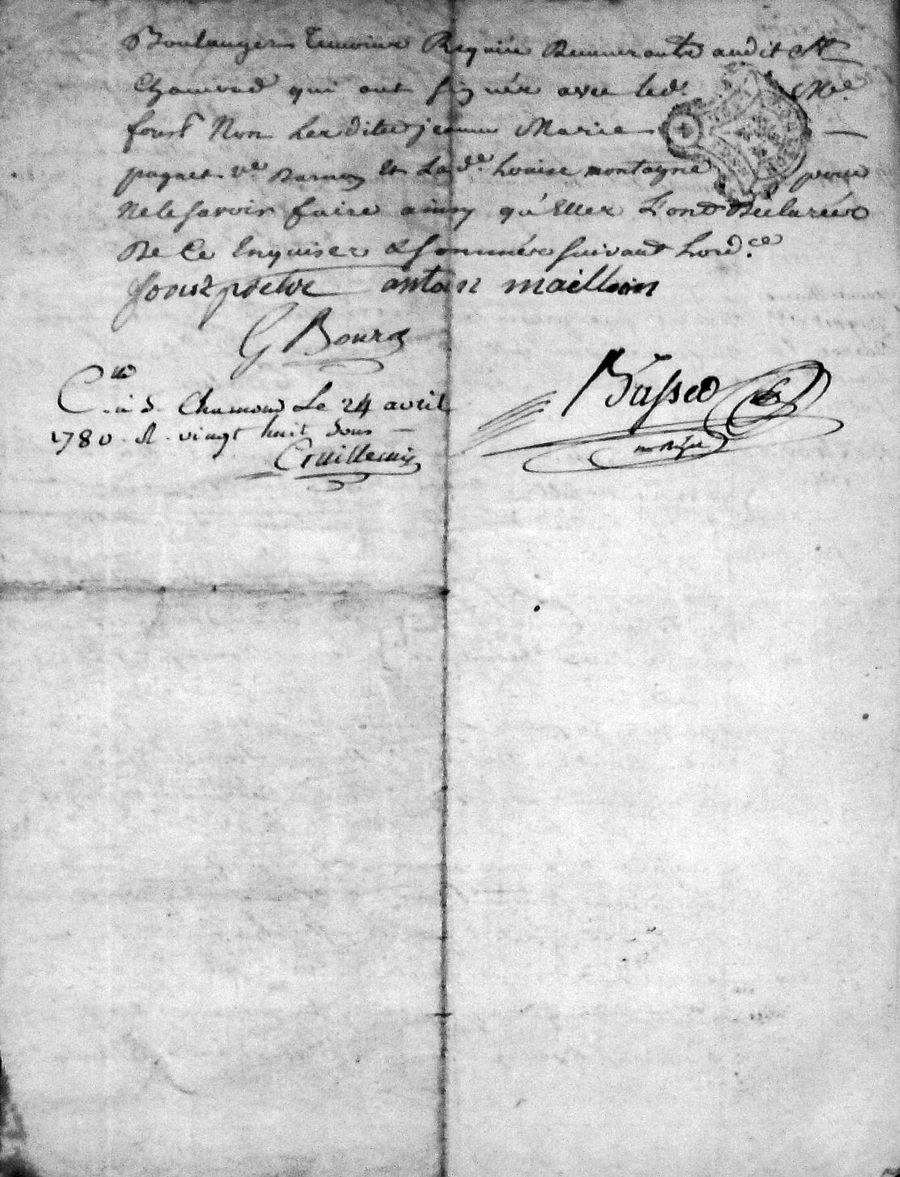 Boulanger temoins Requis Demeurants audit St
Chamond qui ont signés avec led. Me.
foust Non Lesdites jeanne Marie
paquet ve. et La de. Louise montagne pour
Ne le savoir faire ainsy qu'Elles L'ont Declarées
De Ce Enquises & sommées suivant Lord.ce
foust pretre antoine maillon
G Bourg
C.lé à S. Chamond Le 24 avril
1780. R. vingt huit sous
Guillemin
Basset